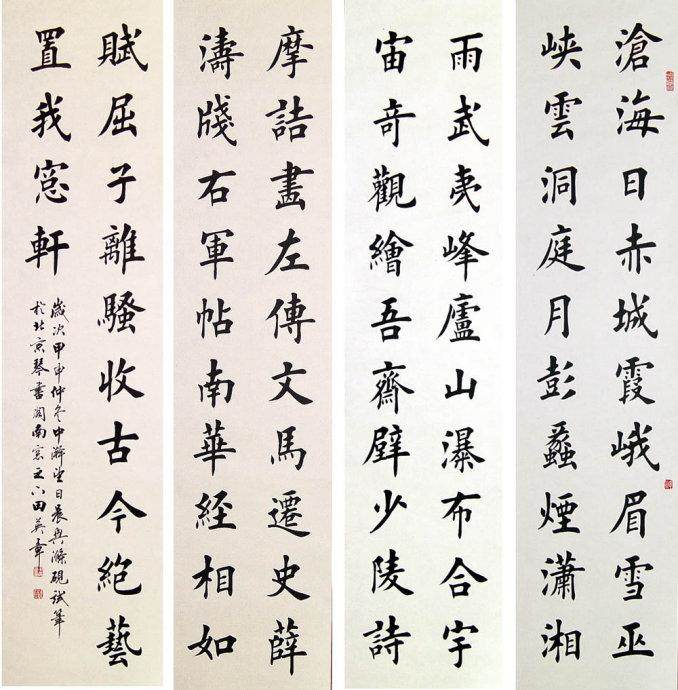 滄海日赤城霞峨眉雪巫
峽雲洞庭月彭蠡煙瀟湘
雨武夷峰廬山瀑布合宇
宙奇觀繪吾齋壁少陵詩
摩詰畫左傳文馬遷史薛
濤牋右軍帖南華經相如
賦屈子離騷收古今絶藝
置我窓軒
歲次甲申仲冬中澣望日晨興滌硯試筆
於北京琴書閣南窓之下田英章